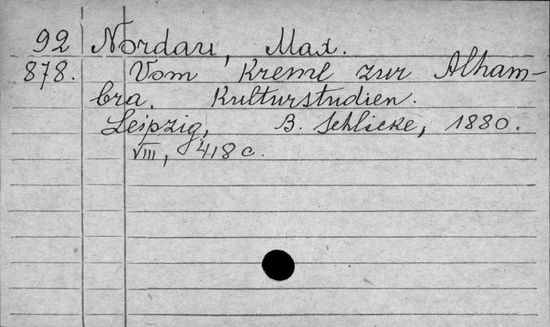 92 Nordau, Max.
878. Vom Kreml zur Alham-
bra. Kulturstudien.
Leipzig, B. Schlicke, 1880.
VIII, 418 c.